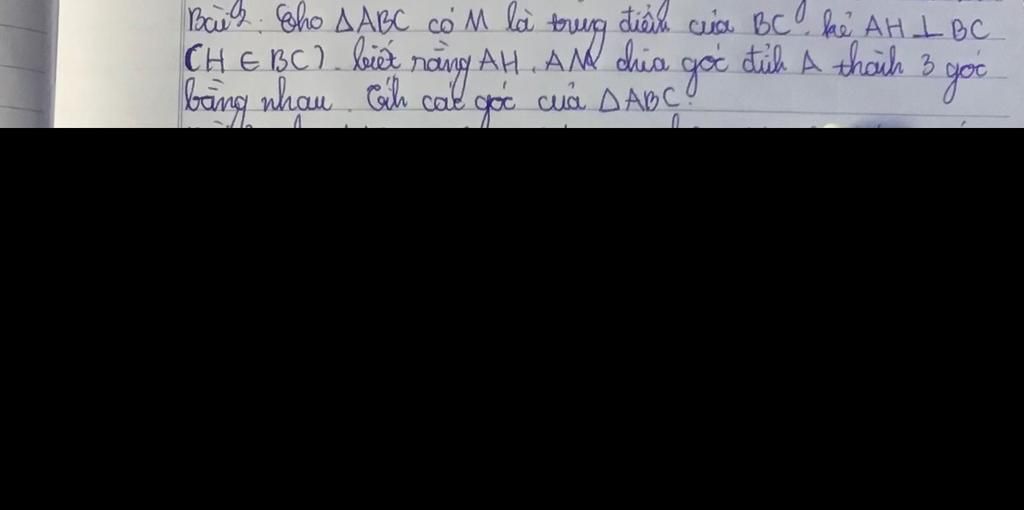 Bài 9. Cho ΔABC có M là trung điểm của BC. kẻ AH ⊥ BC
(H ∈ BC). biết rằng AH, AM chia góc đỉnh A thành 3 góc
bằng nhau. Tính các góc của ΔABC?